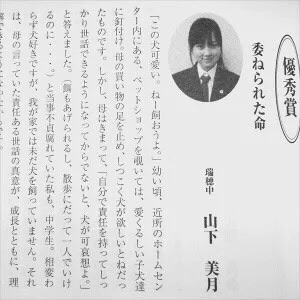 優秀賞
委ねられた命
瑞穂中
山下 美月
「この犬可愛い。ねー飼おうよ。」幼い頃、近所のホームセン
ター内にある、ペットショップを覗いては、愛くるしい子犬達
に釘付け。母の買い物の足を止め、しつこく犬が欲しいとねだっ
たものです。しかし、母はきまって、「自分で責任を持ってしっ
かり世話できるようになってからでないと、犬が可哀想よ。」
と答えました。(餌もあげられるし、散歩にだって一人でいけ
るのに・・・。)と当時不貞腐れていた私も、中学生。相変わ
らず犬好きですが、我が家では未だ犬を飼っていません。それ
は、母の言っていた責任ある世話の真意が、成長とともに、理